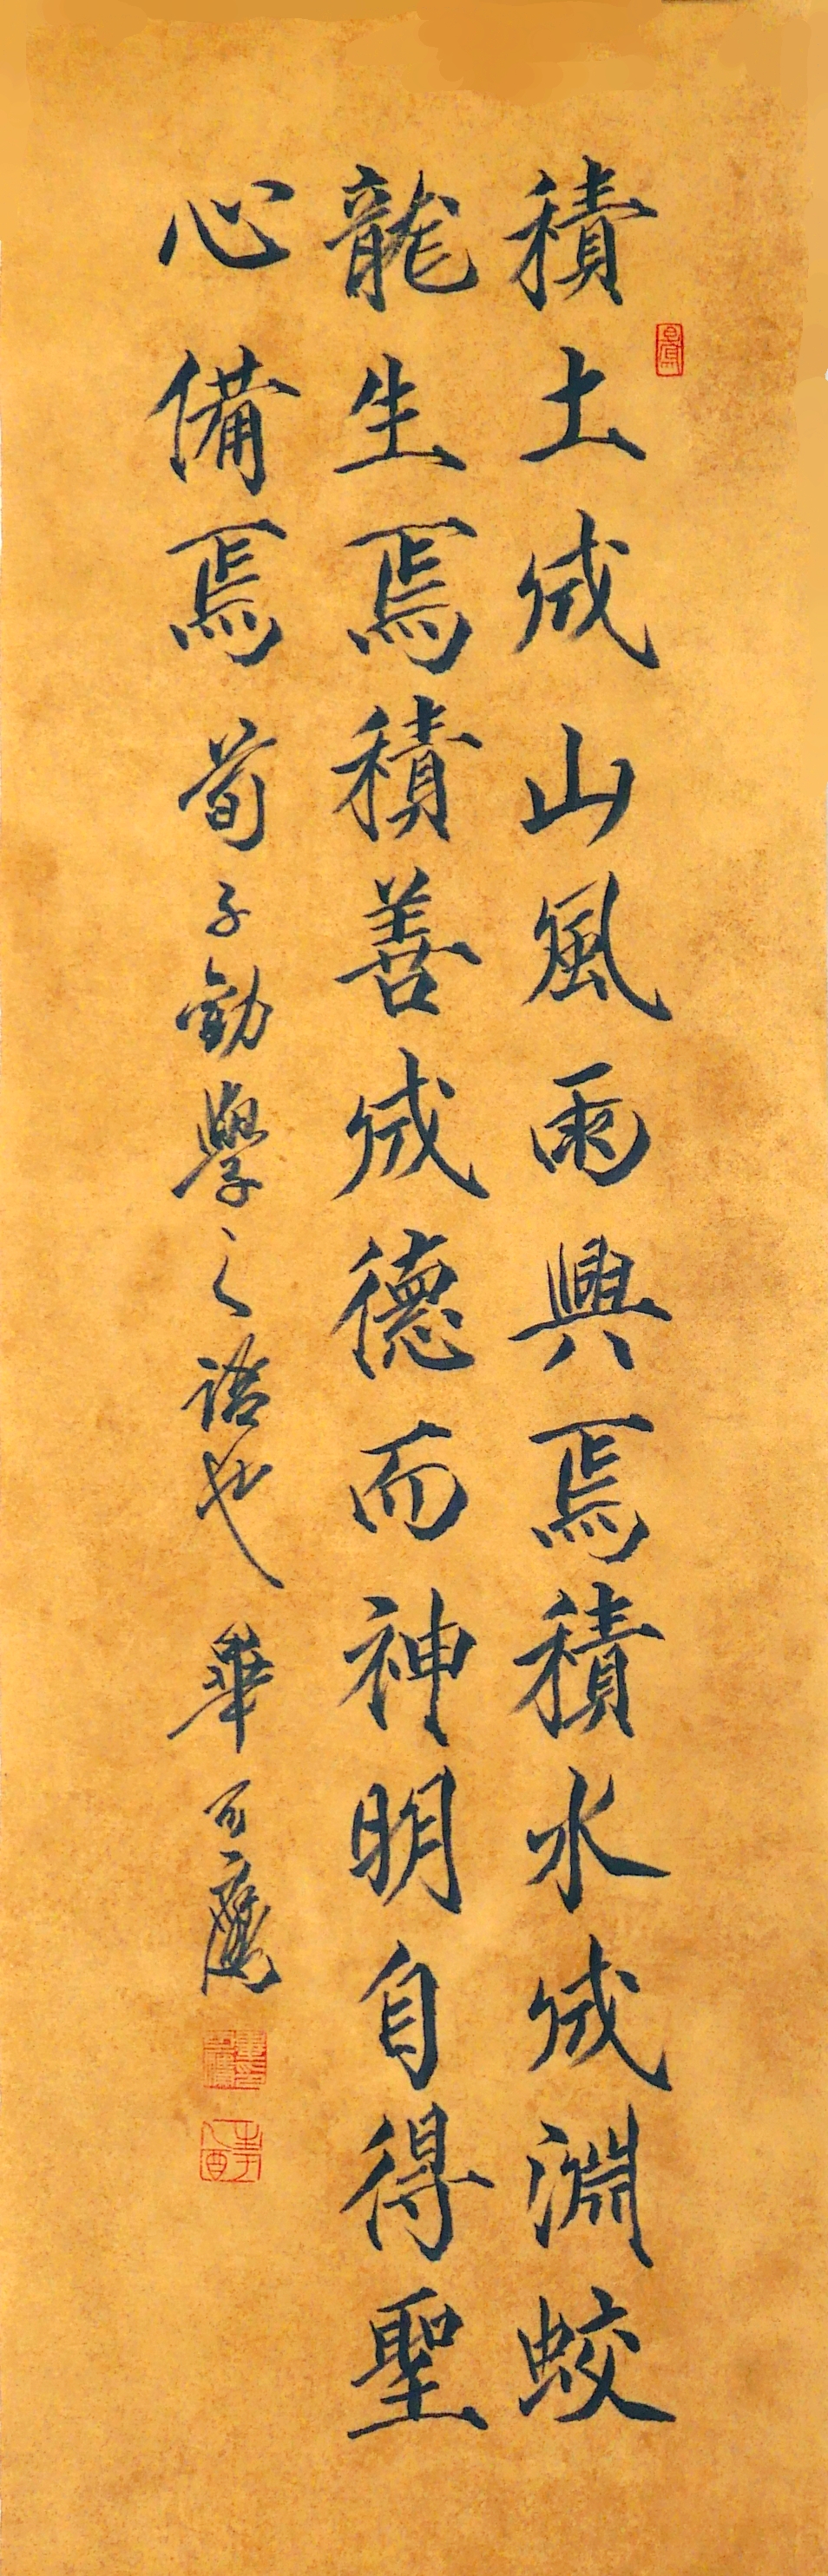 積土成山風雨興焉積水成淵蛟
龍生焉積善成德而神明自得聖
心備焉 荀子勸學之語也 華可鷹